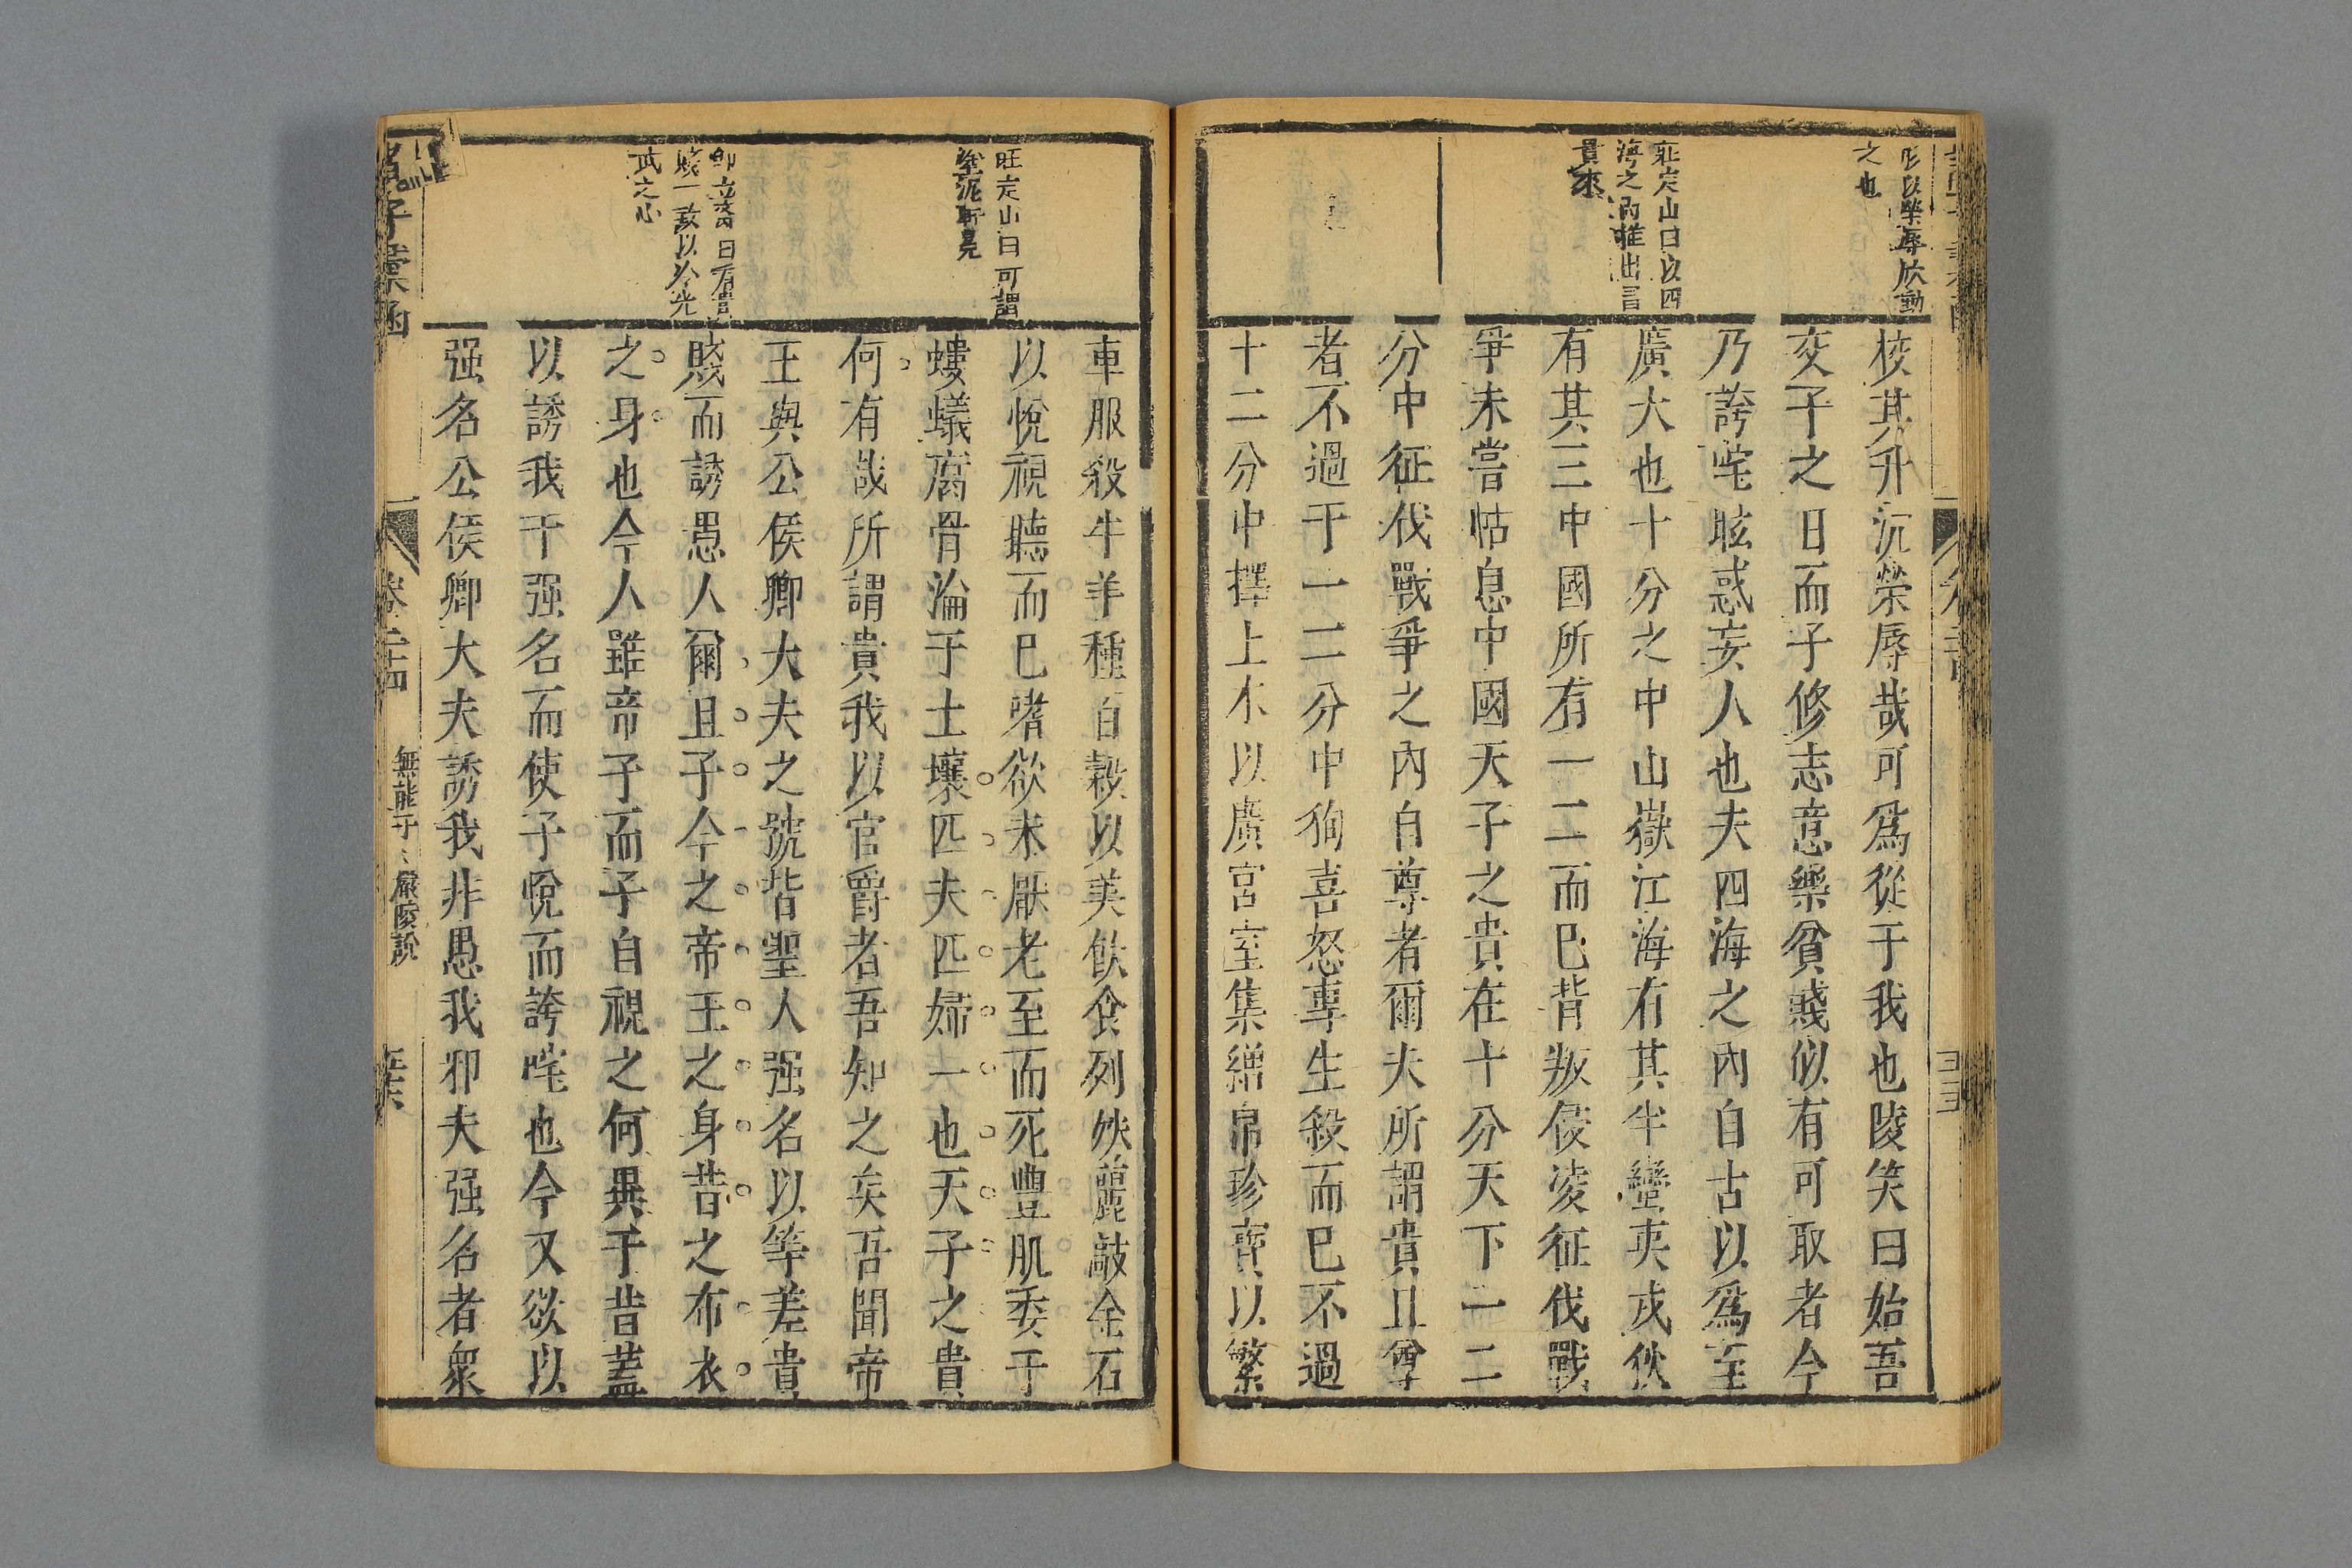 形以榮辱欣動
之也
莊定山曰以四
海之內推出富
貴來
校其升沉榮辱哉可爲從于我也陵笑曰始吾
交子之日而子修志意樂貧賤似有可取者今
乃誇咤眩惑妄人也夫四海之內自古以爲至
廣大也十分之中山嶽江海有其半蠻夷戎狄
有其三中國所有一二而已背叛侵凌征伐戰
爭未嘗怗息中國天子之貴在十分天下一二
分中征伐戰爭之內自尊者爾夫所謂貴且尊
者不過于一二分中徇喜怒專生殺而已不過
十二分中擇上木以廣宮室集繒帛珍寶以繁
旺定山曰可謂
塗泥軒晃
卽立齋曰有貴
賤一致以冷光
武之心
車服殺牛羊種百穀以美飲食列姝麗敲金石
以悅視聽而已嗜欲未厭老至而死豐肌委于
螻蟻腐骨淪于土壤匹夫匹婦一也天子之貴
何有哉所謂貴我以官爵者吾知之矣吾聞帝
王與公侯卿大夫之號皆聖人强名以等差貴
賤而誘愚人爾且子今之帝王之身昔之布衣
之身也今人雖帝子而子自視之何異于昔蓋
以誘我干强名而使子悅而誇咤也今又欲以
强名公侯卿大夫誘我非愚我邪夫强名者衆
諸子彙函
卷二十四
無能子、嚴陵說